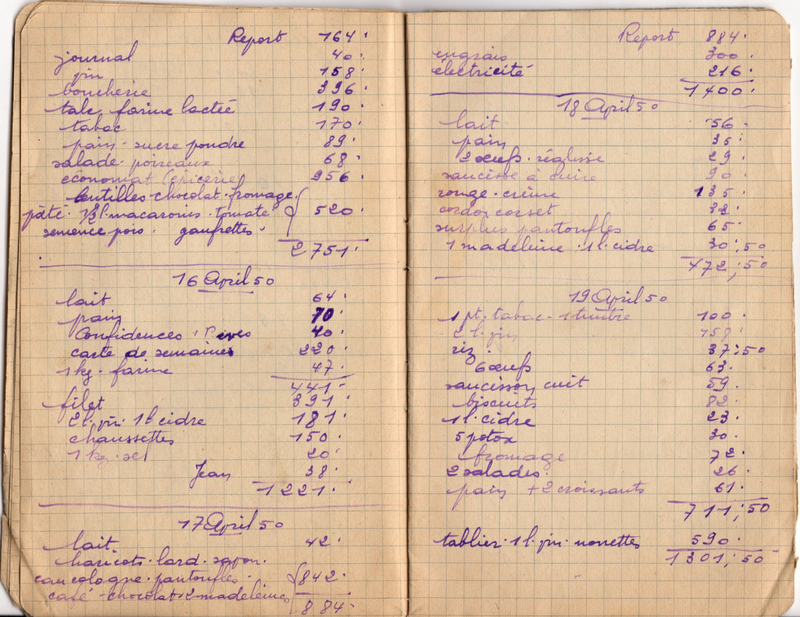 Report 164.
journal 40.
vin 158.
boucherie 396.
talc. farine lactée 190.
tabac 170.
pain. sucre poudre 89.
salade. poireaux 68.
économat (épicerie) 956.
lentilles. chocolat. fromage.
pâté. 1/2 l. macaronis. tomate 520.
semence pois. gaufrettes.
2751.
16 April 50
lait 64.
pain 70.
Confidences. 40.
carte de semaines 220.
1 kg. farine 47.
441.
filet 391.
2 l. vin. 1 l. cidre 181.
chaussettes 150.
1 kg. sel 20.
Jean 38.
1221.
17 April 50
lait 42.
haricots. lard. savon.
eau cologne. pantoufles. 842.
café. chocolat. 2 madeleines
884.
Report 884.
engrais 300.
électricité 216.
1400.
18 April 50
lait 56.
pain 35.
2 oeufs. réglisse 29.
saucisse à cuire 90.
rouge. crème 135.
cordon corset 32.
surplus pantoufles 65.
1 madeleine. 1 l. cidre 30;50
472;50
19 April 50
1 pt. tabac. 1 timbre 100.
2 l. vin 158.
riz. 37;50
6 oeufs 63.
saucisson cuit 59.
biscuits 82.
1 l. cidre 23.
5 potox 30.
fromage 72.
2 salades. 26.
pain + 2 croissants 61.
711;50
tablier. 1 l. vin. 590.
1301;50